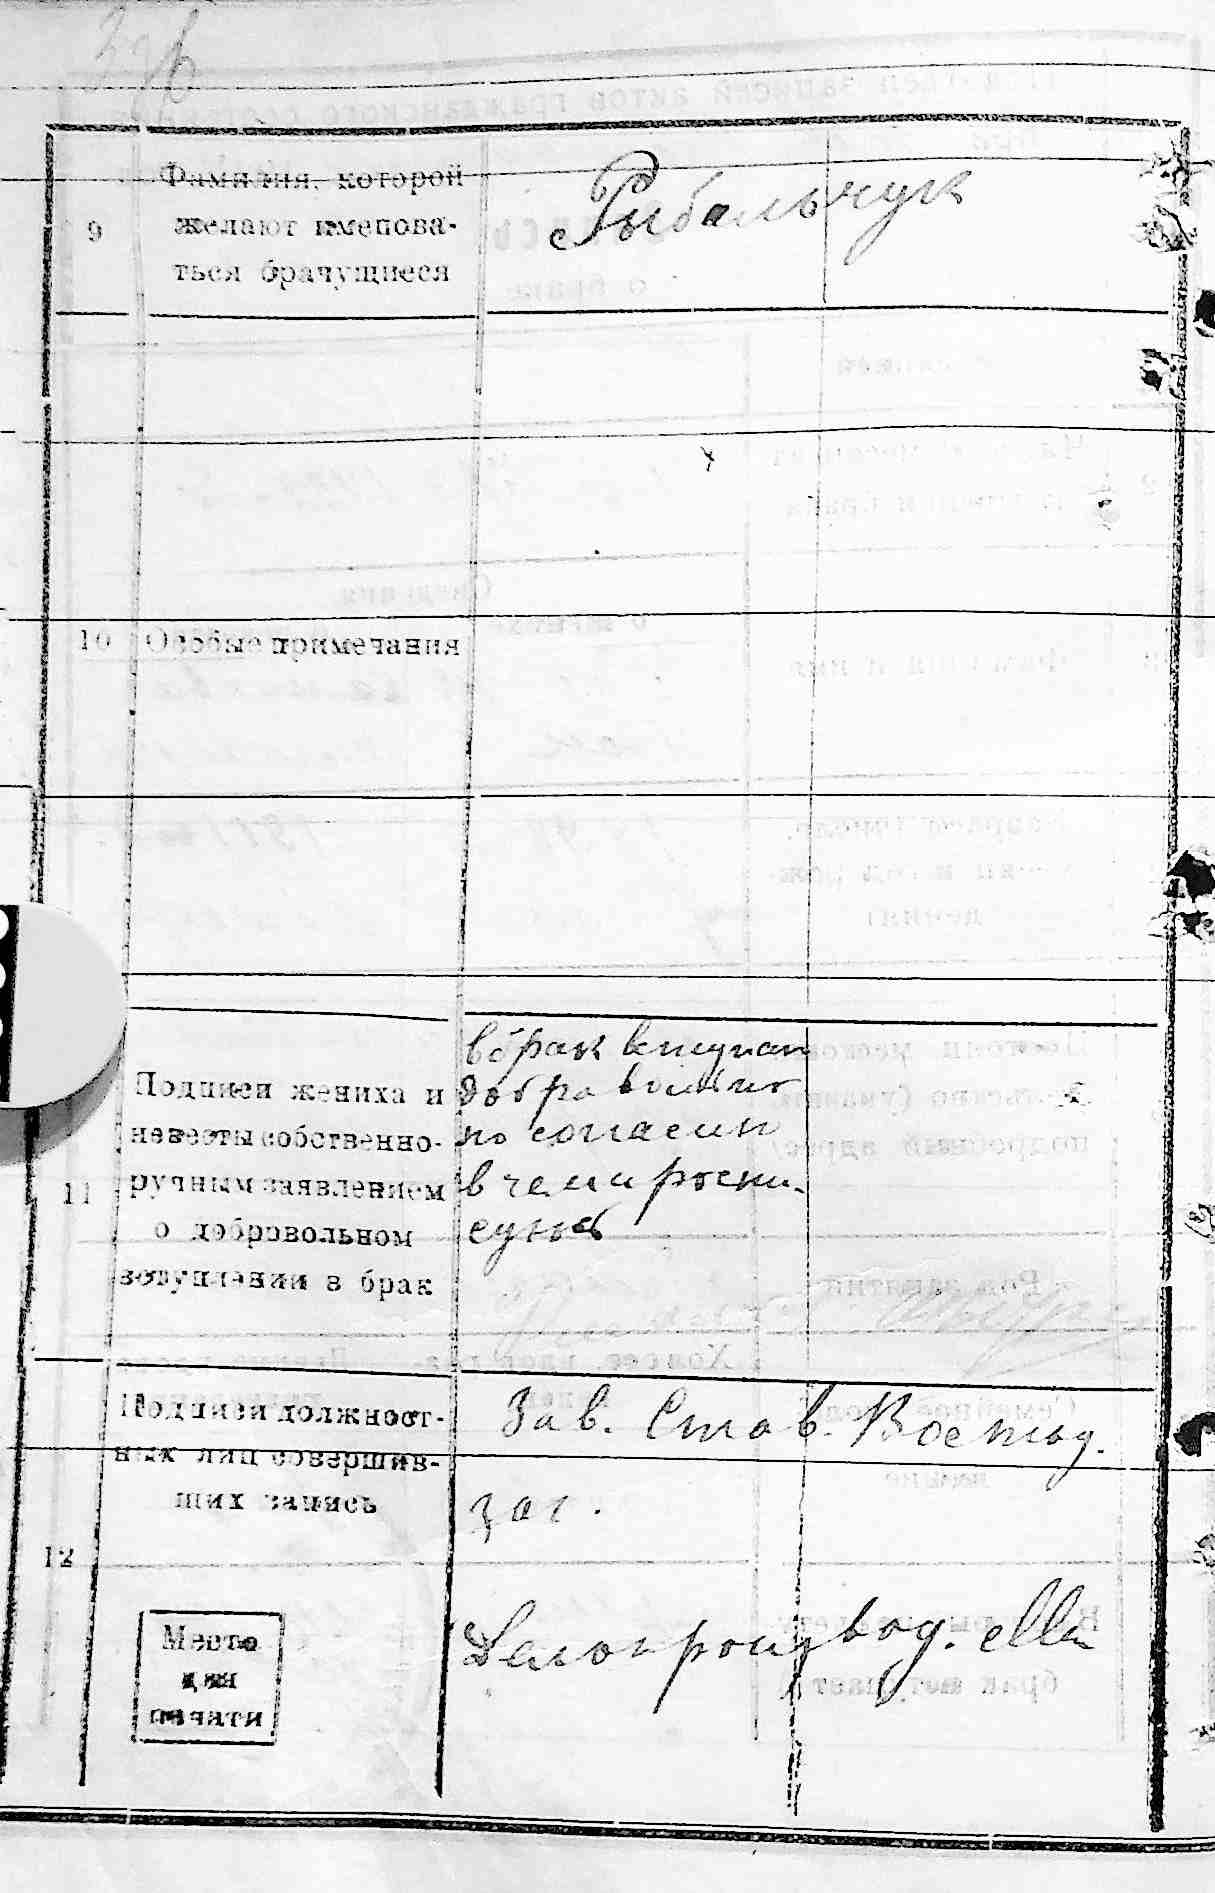 9
Фамилия, которой
желают именова-
ться брачущиеся
Рыбальчук
10
Особые примечания
11
Подписи жениха и
невесты собственно-
ручным заявлением
о добровольном
вступлении в брак
в брак вступаем
добравольно
по согласии
в чем и роспи-
суюся
12
Подписи должност-
ных лиц совершив-
ших запись
Зав. Став.
заг.
Делопроизвод.
Место
для
печати